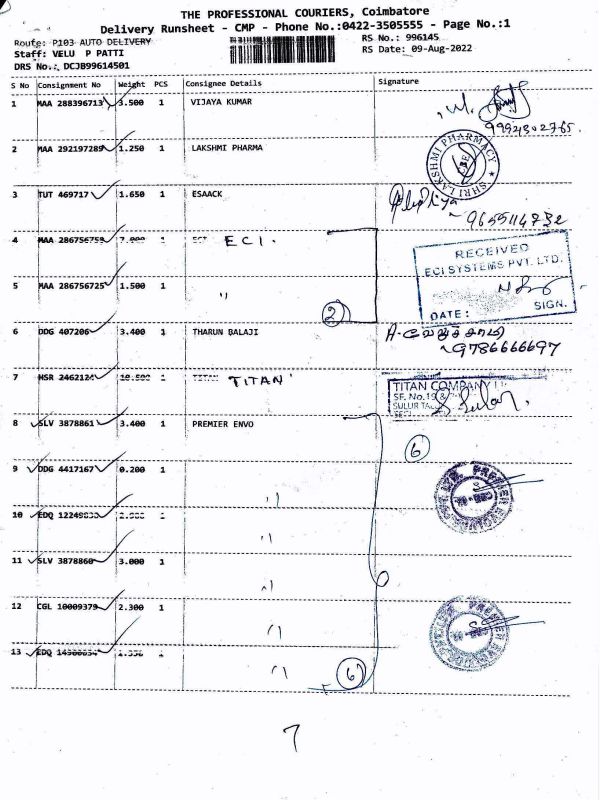 THE PROFESSIONAL COURIERS, Coimbatore
Delivery Runsheet - CMP - Phone No.:0422-3505555 - Page No.:1
Route: P103 AUTO DELIVERY
RS No.: 996145
Staff: VELU P PATTI
RS Date: 09-Aug-2022
DRS No.: DCJB99614501
S No Consignment No Weight PCS Consignee Details Signature
1 MAA 288396713 3.500 1 VIJAYA KUMAR
2 MAA 292197289 1.250 1 LAKSHMI PHARMA
SHRI LAKSHMI PHARMACY
3 TUT 469717 1.650 1 ESAACK
9655114732
4 MAA 286756759 7.000 1 ECI ECI.
RECEIVED
ECI SYSTEMS PVT. LTD.
5 MAA 286756725 1.500 1 "
2
DATE: SIGN.
6 DDG 407206 3.400 1 THARUN BALAJI
9786666697
7 HSR 1 TITAN TITAN
TITAN COMPANY
SULUR
8 SLV 3878861 3.400 1 PREMIER ENVO
6
9 DDG 4417167 0.200 1 "
10 EDQ 1 "
11 SLV 3878860 3.000 1 "
12 CGL 10009379 2.300 1 "
PREMIER
13 EDQ 1 "
6
7